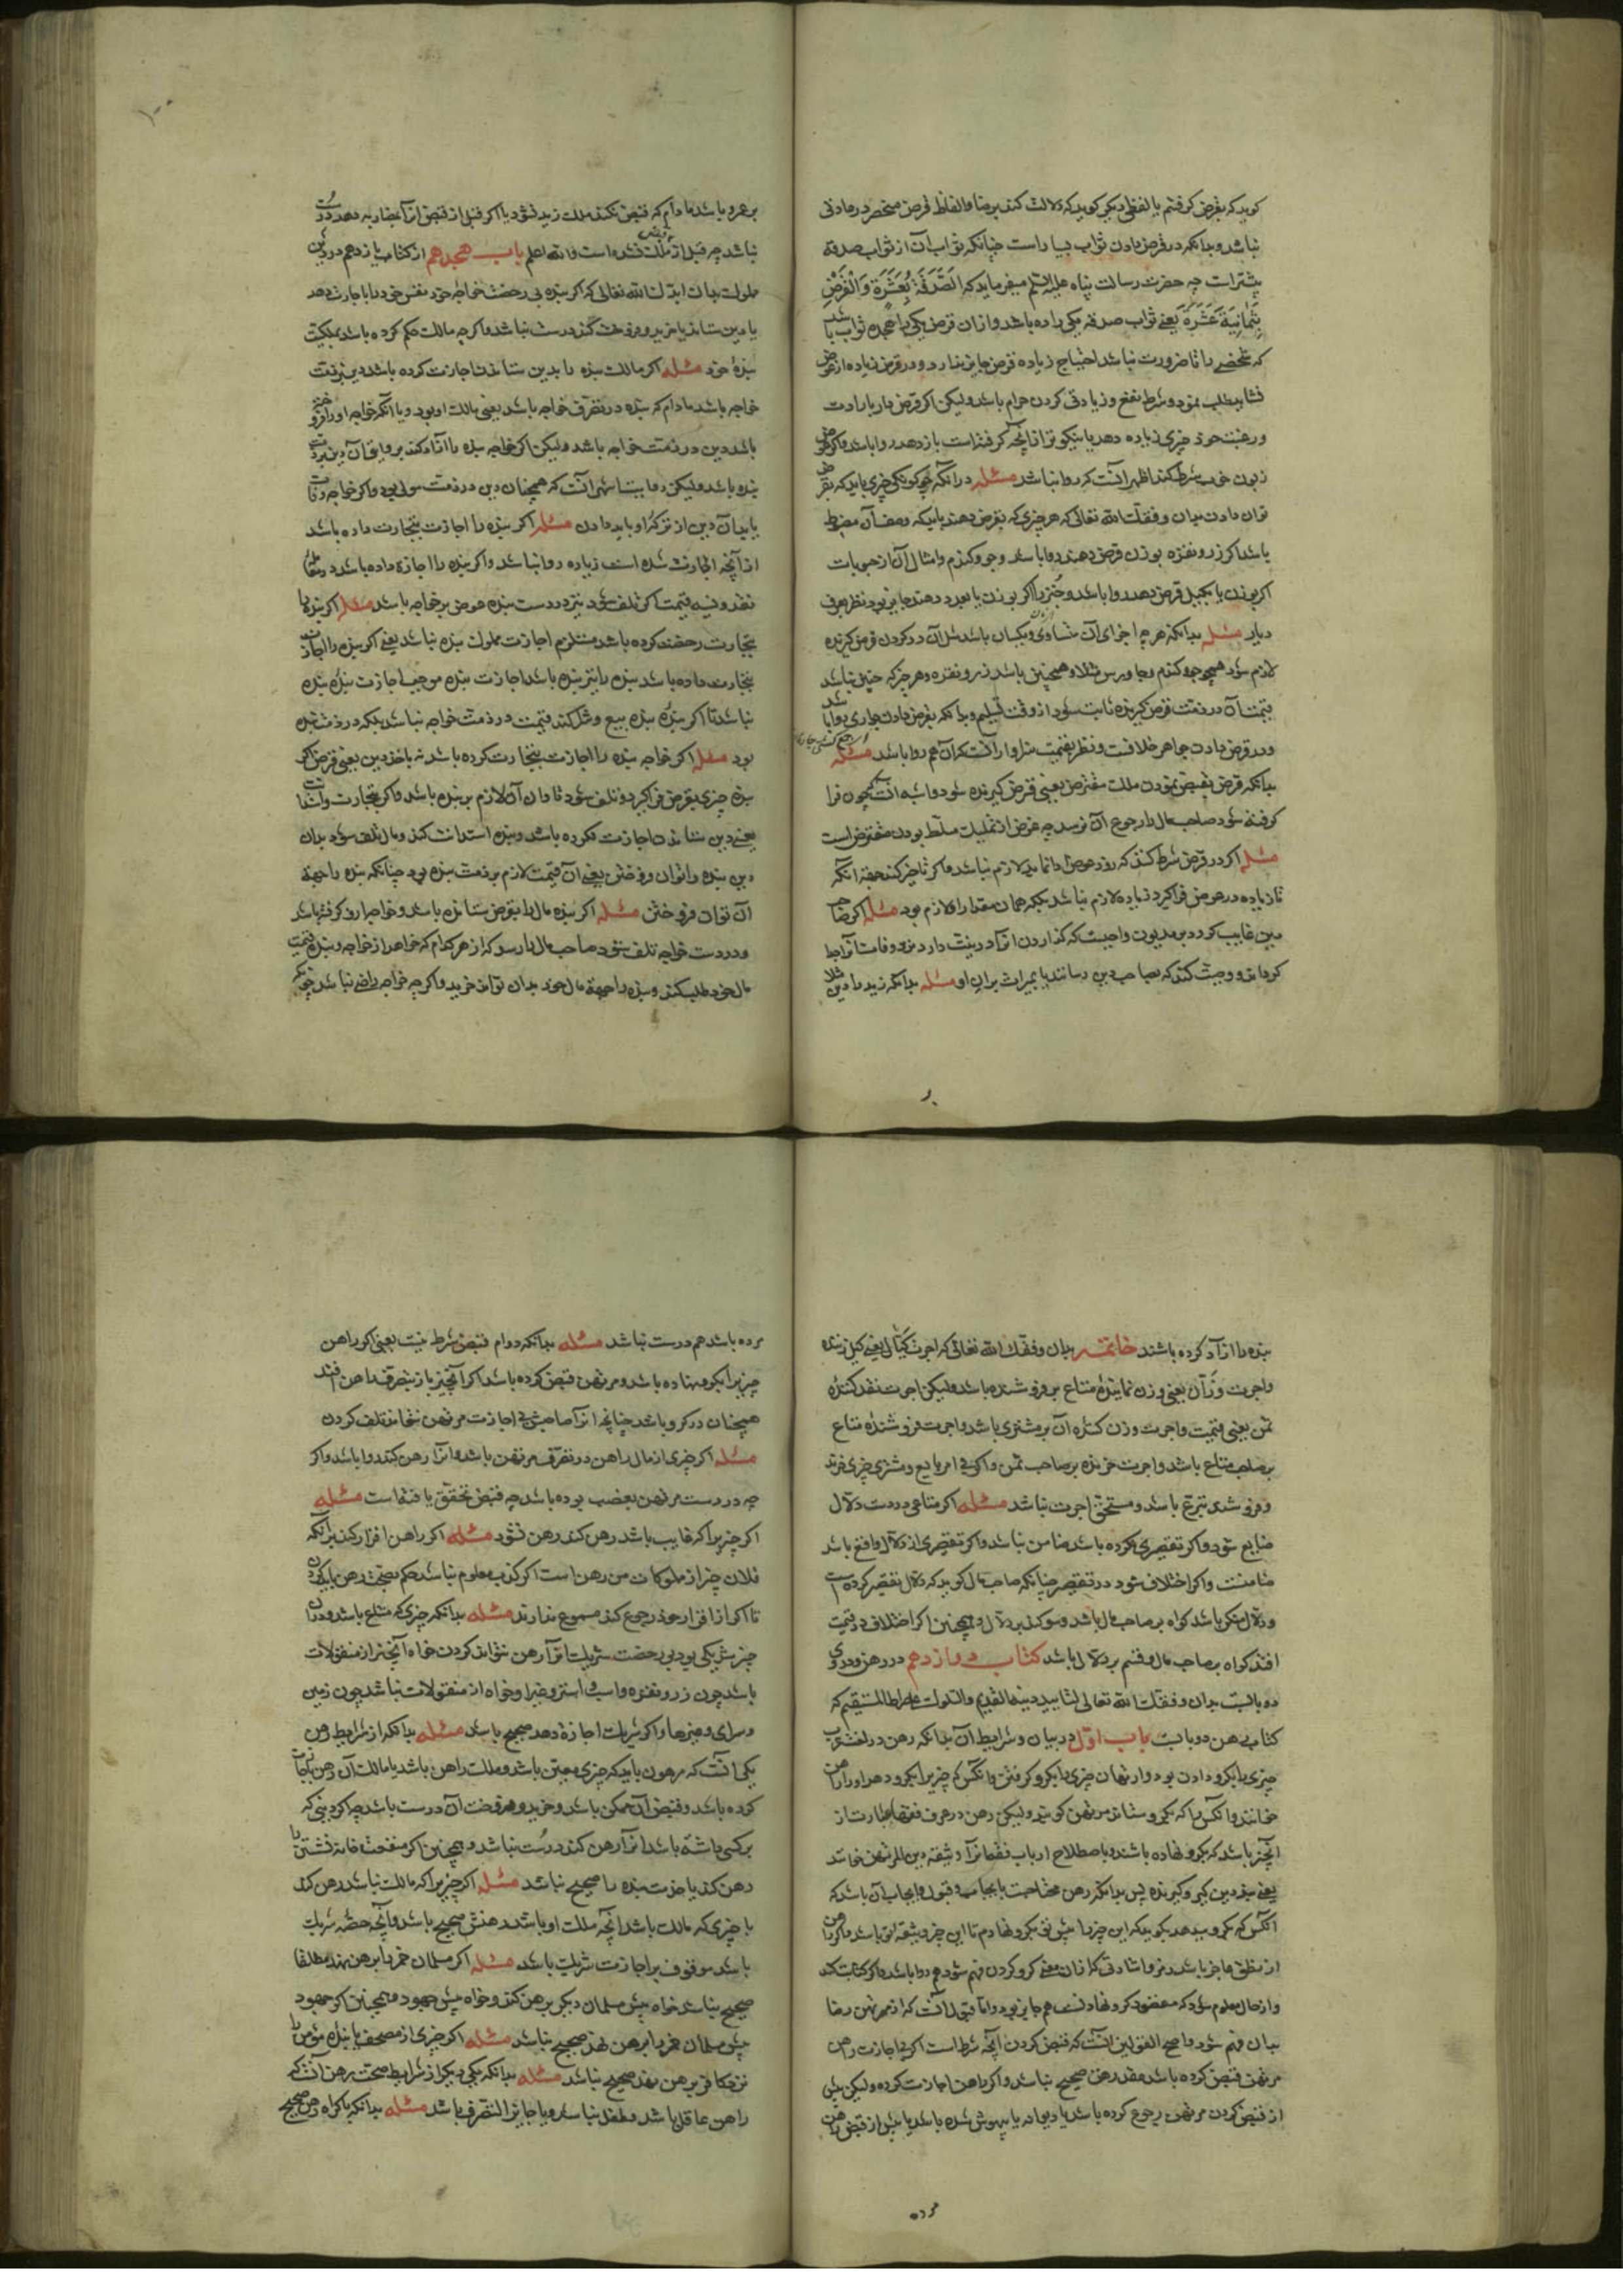 کوید که بقرض کرفتم یا لفظی دیکر کوید که دلالت کند برضا و الفاظ قرض منحصر درماذی
نباشد و بدانکه در قرض دادن ثواب بسیار است چنانکه ثواب آن از ثواب صدقه
بیشتر است چه حضرت رسالت پناه علیه السلم میفرماید که الصَّدَقَةُ بِعَشَرَةٍ وَالْقَرْضُ
بِثَمَانِیَةَ عَشَرَةَ یعنی ثواب صدقه یکی را ده باشد و از ان قرض یکی را هجده ثواب باشد
که شخصی را تا ضرورت نباشد احتیاج زیاده قرض جایز ندارد و در قرض زیاده از عوض
نشاید طلب نمود و شرط نفع و زیادتی کردن حرام باشد ولیکن اکر قرض دار بارادت
و رغبت خود چیزی زیاده دهد یا نیکوتر از انچه کرفته است باز دهد روا باشد و اکر عوض
زبون خوب شرط کند اظهر آنست که روا نباشد مسئله در آنکه چکونکی چیزی باید که بقرض
توان دادن بدان وفقک الله تعالی که هر چیزی که بقرض دهند باید که وصف آن مضبوط
باشد اکر زر و نقره بوزن قرض دهند روا باشد و جو و کندم و امثال آن از حبوبات
اکر بوزن یا بکیل قرض دهد روا باشد و خُبز را اکر بوزن یا بعدد دهند جایز بود نظر بعرف
دیار مسئله بدانکه هرچه اجزای آن متساوی و یکسان باشد مثل آن رد کردن قرض کیرنده
لازم شود همچو جو و کندم و جاورس مثلا و همچنین باشد زر و نقره و هرچیز که چنین نباشد
قیمت آن در ذمت قرض کیرنده ثابت شود از وقت تسلیم و بدانکه بقرض دادن جواری روا باشد
و در قرض دادن جواهر خلافست و نظر بقیمت سزاوار انست که آن هم روا باشد مسئله
بدانکه قرض بقبض نمودن ملک مقترض یعنی قرض کیرنده شود و اشبه انست که چون فرا
کرفته شود صاحب مال را رجوع آن نرسد چه غرض از تملیک مسلط بودن مقترض است
مسئله اکر در قرض شرط کند که زود عوض را نماید لازم نباشد و اکر تاخیر کند بجهة انکه
تا زیاده در عوض فراکیرد زیاده لازم نباشد بلکه همان مقدار اول لازم بود مسئله اکر صاحب
دین غایب کردد بر مدیون واجبست که کذاردن انرا در نیت دارد نزد وفات انرا جدا
کرداند و وصیت کند که بصاحب دین رسانند یا بمیراث بران او مسئله بدانکه زید را دین مثلا
بر عمرو باشد مادام که قبض نکند ملک زید نشود و اکر قبل از قبض انرا بمضاربه دهد درست
نباشد چه قبل از قبض ملک نشده است والله اعلم باب هجدهم از کتاب یازدهم در دین
مملوک بدان ایدک الله تعالی که اکر بنده بی رخصت خواجه خود نفس خود را با جارت دهد
یا دین ستاند یا خرید و فروخت کند درست نباشد و اکر چه مالک حکم کرده باشد بملکیت
بندهٔ خود مسئله اکر مالک بنده را بدین ستاندن اجازت کرده باشد دین بذمت
خواجه باشد مادام که بنده در تصرف خواجه باشد یعنی مالک او بود و یا آنکه خواجه او را فروخته
باشد دین در ذمت خواجه باشد ولیکن اکر خواجه بنده را آزاد کند بروایتی آن دین بر ذمت
بنده باشد ولیکن روایت اشهر آنست که همچنان دین در ذمت مولی بود و اکر خواجه وفات
یابد آن دین از ترکه او باید دادن مسئله اکر بنده را اجازت بتجارت داده باشد
از آنچه اجازت شده است زیاده روا نباشد و اکر بنده را اجازه داده باشد در معاملهٔ
نقد و نسیه قیمت اکر تلف شود نیز در دست بنده عوض بر خواجه باشد مسئله اکر بنده را
بتجارت رخصت کرده باشد مستلزم اجازت مملوک بنده نباشد یعنی اکر بنده را اجازت
بتجارت داده باشد بنده را نیز بنده باشد اجازت بنده موجب اجازت بندهٔ بنده
نباشد تا اکر بندهٔ بنده بیع و شرا کند قیمت در ذمت خواجه نباشد بلکه در ذمت بنده
بود مسئله اکر خواجه بنده را اجازت بتجارت کرده باشد نه باخذ دین یعنی قرض اکر
بنده چیزی بقرض فراکیرد و تلف شود تاوان آن لازم بر بنده باشد و اکر بتجارت و استدانت
یعنی دین ستاندن اجازت نکرده باشد و بنده استدانت کند و مال تلف شود بدان
دین بنده را نتوان فروختن یعنی آن قیمت لازم بر ذمت بنده بود چنانکه بنده را بجهة
آن نتوان فروختن مسئله اکر بنده مال را بقرض ستانده باشد و خواجه از و کرفته باشد
و در دست خواجه تلف شود صاحب مال را رسد که از هر کدام که خواهد از خواجه و بنده قیمت
مال خود طلب کند و بنده را بجهة مال خود بدان تواند خرید و اکر چه خواجه راضی نباشد چنانکه
بنده را آزاد کرده باشند خاتمه بدان وفقک الله تعالی که اجرت کیّال یعنی کیل زننده
و اجرت وزّان یعنی وزن نمایندهٔ متاع بر فروشنده باشد ولیکن اجرت نقد کنندهٔ
ثمن یعنی قیمت و اجرت وزن کننده آن بر مشتری باشد و اجرت فروشندهٔ متاع
بر صاحب متاع باشد و اجرت خرنده بر صاحب ثمن و اکر بی امر بایع و مشتری چیزی خرند
و فروشند متبرع باشد و مستحق اجرت نباشد مسئله اکر متاعی در دست دلال
ضایع شود و اکر تقصیری نکرده باشد ضامن نباشد و اکر تقصیری از دلال واقع باشد
ضامنست و اکر اختلاف شود در تقصیر چنانکه صاحب مال کوید که دلال تقصیر کرده است
و دلال منکر باشد کواه بر صاحب مال باشد و سوکند بر دلال و همچنین اکر اختلاف در قیمت
افتد کواه بر صاحب مال و قسم بر دلال باشد کتاب دوازدهم در رهن و در وی
دو بابست بدان وفقک الله تعالی لتایید دینه القدیم والسلوک علی صراط المستقیم که
کتاب رهن دو بابست باب اول در بیان و شرایط آن بدانکه رهن در لغت عرب
چیزی را بکرو دادن بود و ارتهان چیزی را بکرو کرفتن و آنکس که چیز را بکرو دهد او را راهن
خوانند و آنکس را که بکرو ستاند مرتهن کویند ولیکن رهن در عرف فقها عبارت از
آنچیز باشد که بکرو نهاده باشند و باصطلاح ارباب فقه انرا وثیقه دین المرتهن خوانند
یعنی بند دین کیر و کیرنده پس بدانکه رهن محتاجست بایجاب و قبول و ایجاب آن باشد که
آنکس که بکرو میدهد بکوید که این چیز را پیش تو بکرو نهادم تا این چیز وثیقه تو باشد و اکر راهن
از نطق عاجز باشد و از و اشارتی که از ان معنی کرو کردن فهم شود هم روا باشد و اکر کتابت کند
و از حال معلوم شود که مقصود کرو نهادنست هم جایز بود و اما قبول انست که از مرتهن رضا
بدان فهم شود و اصح القولین آنست که قبض کردن آنچه شرط است اکر بی اجازت راهن
مرتهن قبض کرده باشد عقد رهن صحیح نباشد و اکر راهن اجازت کرده ولیکن پیش
از قبض کردن مرتهن رجوع کرده باشد یا دیوانه یا بیهوش شده باشد یا پیش از قبض راهن
مرده باشد هم درست نباشد مسئله بدانکه دوام قبض شرط نیست یعنی اکر راهن
چیز را بکرو نهاده باشد و مرتهن قبض کرده باشد اکر آنچیز باز بتصرف راهن افتد
همچنان در کرو باشد چنانچه انرا صاحبش بی اجازت مرتهن نتواند تلف کردن
مسئله اکر چیزی از مال راهن در تصرف مرتهن باشد و انرا رهن کند روا باشد و اکر
چه در دست مرتهن بغصب بوده باشد چه قبض تحقق یافته است مسئله
اکر چیزیرا که غایب باشد رهن کند رهن نشود مسئله اکر راهن اقرار کند بر آنکه
فلان چیز از مملوکات من رهن است اکر کذب معلوم نباشد حکم بصحت رهن باید کردن
تا اکر از اقرار خود رجوع کند مسموع ندارند مسئله بدانکه چیزی که مشاع باشد و در ان
چیز شریکی بود بی رخصت شریک انرا رهن نتواند کردن خواه آنچیز از منقولات
باشد چون زر و نقره و اسب و استر و غیرا و خواه از منقولات نباشد چون زمین
و سرای و غیرها و اکر شریک اجازه دهد صحیح باشد مسئله بدانکه از شرایط رهن
یکی آنست که مرهون باید که چیزی معین باشد و ملک راهن باشد یا مالک آن رهن را اجازت
کرده باشد و قبض آن ممکن باشد و خرید و فروخت آن درست باشد چه اکر دینی که
بر کسی داشته باشد انرا رهن کند درست نباشد و همچنین اکر منفعت خانه نشستن را
رهن کند یا خدمت بنده را صحیح نباشد مسئله اکر چیزیرا که مالک نباشد رهن کند
با چیزی که مالک باشد آنچه ملک او باشد رهنش صحیح باشد و آنچه حصّه شریک
باشد موقوف بر اجازت شریک باشد مسئله اکر مسلمان خمر را برهن نهد مطلقا
صحیح نباشد خواه پیش مسلمان دیکر برهن کند و خواه پیش جهود و همچنین اکر جهود
پیش مسلمان خمر را برهن نهد صحیح نباشد مسئله اکر چیزی از مصحف یا بندهٔ مؤمن را
نزد کافر برهن نهد صحیح نباشد مسئله بدانکه یکی دیکر از شرایط صحت رهن آنست که
راهن عاقل باشد و طفل نباشد و یا جایز التصرف باشد مسئله بدانکه باکراه رهن صحیح
مرده